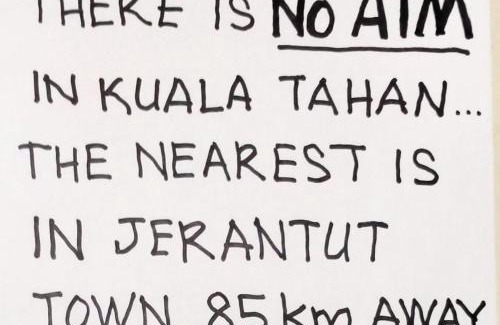 THERE IS NO ATM
IN KUALA TAHAN...
THE NEAREST IS
IN JERANTUT
TOWN 85km AWAY